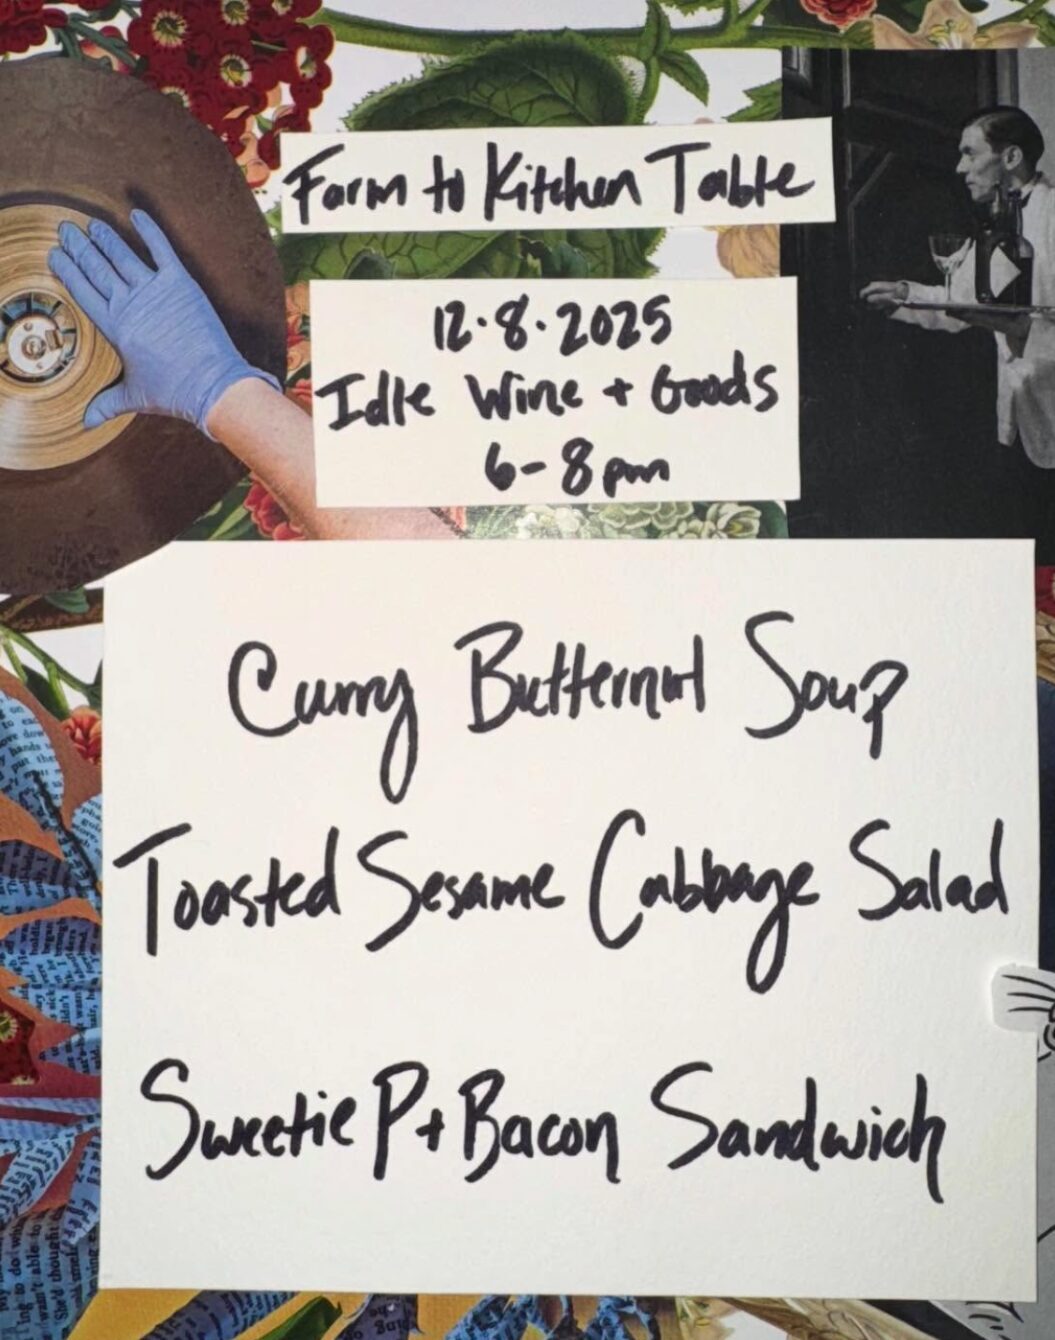 Farm to Kitchen Table
12.8.2025
Idle Wine + Goods
6-8pm
Curry Butternut Soup
Toasted Sesame Cabbage Salad
Sweetie P+Bacon Sandwich